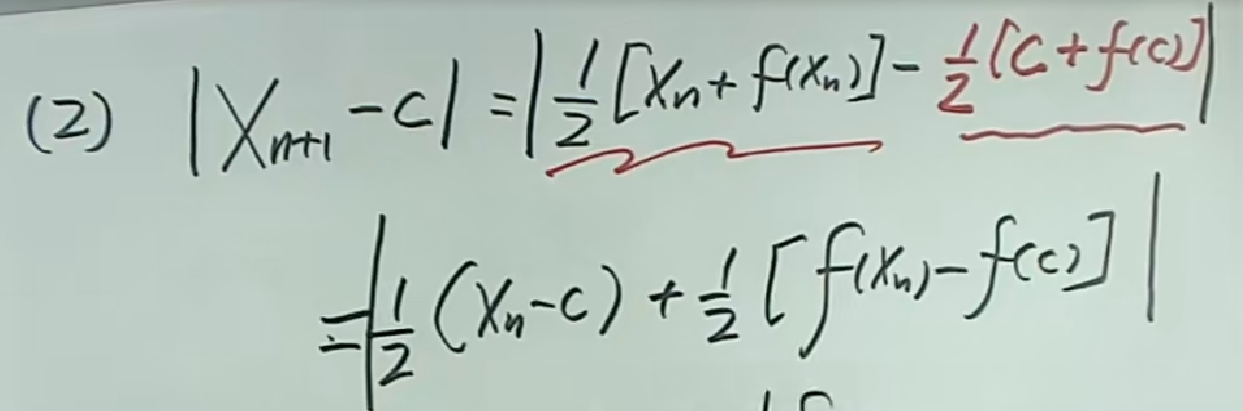 (2) |X_{n+1} - c| = |\frac{1}{2}[X_n + f(X_n)] - \frac{1}{2}[c + f(c)]|
= |\frac{1}{2}(X_n - c) + \frac{1}{2}[f(X_n) - f(c)]|